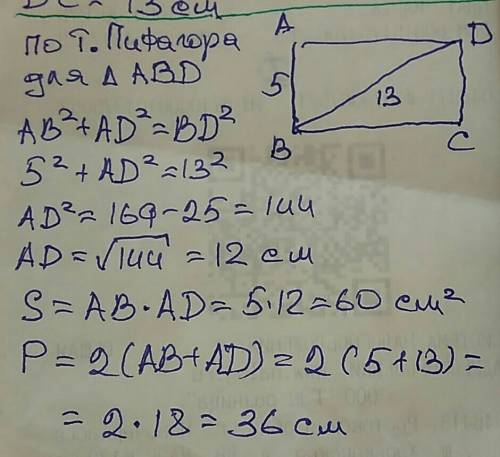 = 13 см
по т. Пифагора
для Δ ABD
AB²+AD²=BD²
5²+AD²=13²
AD²=169-25=144
AD=√144=12 см
S=AB·AD=5·12=60 см²
P=2(AB+AD)=2(5+13)=
=2·18=36 см
A
D
5
13
B
C